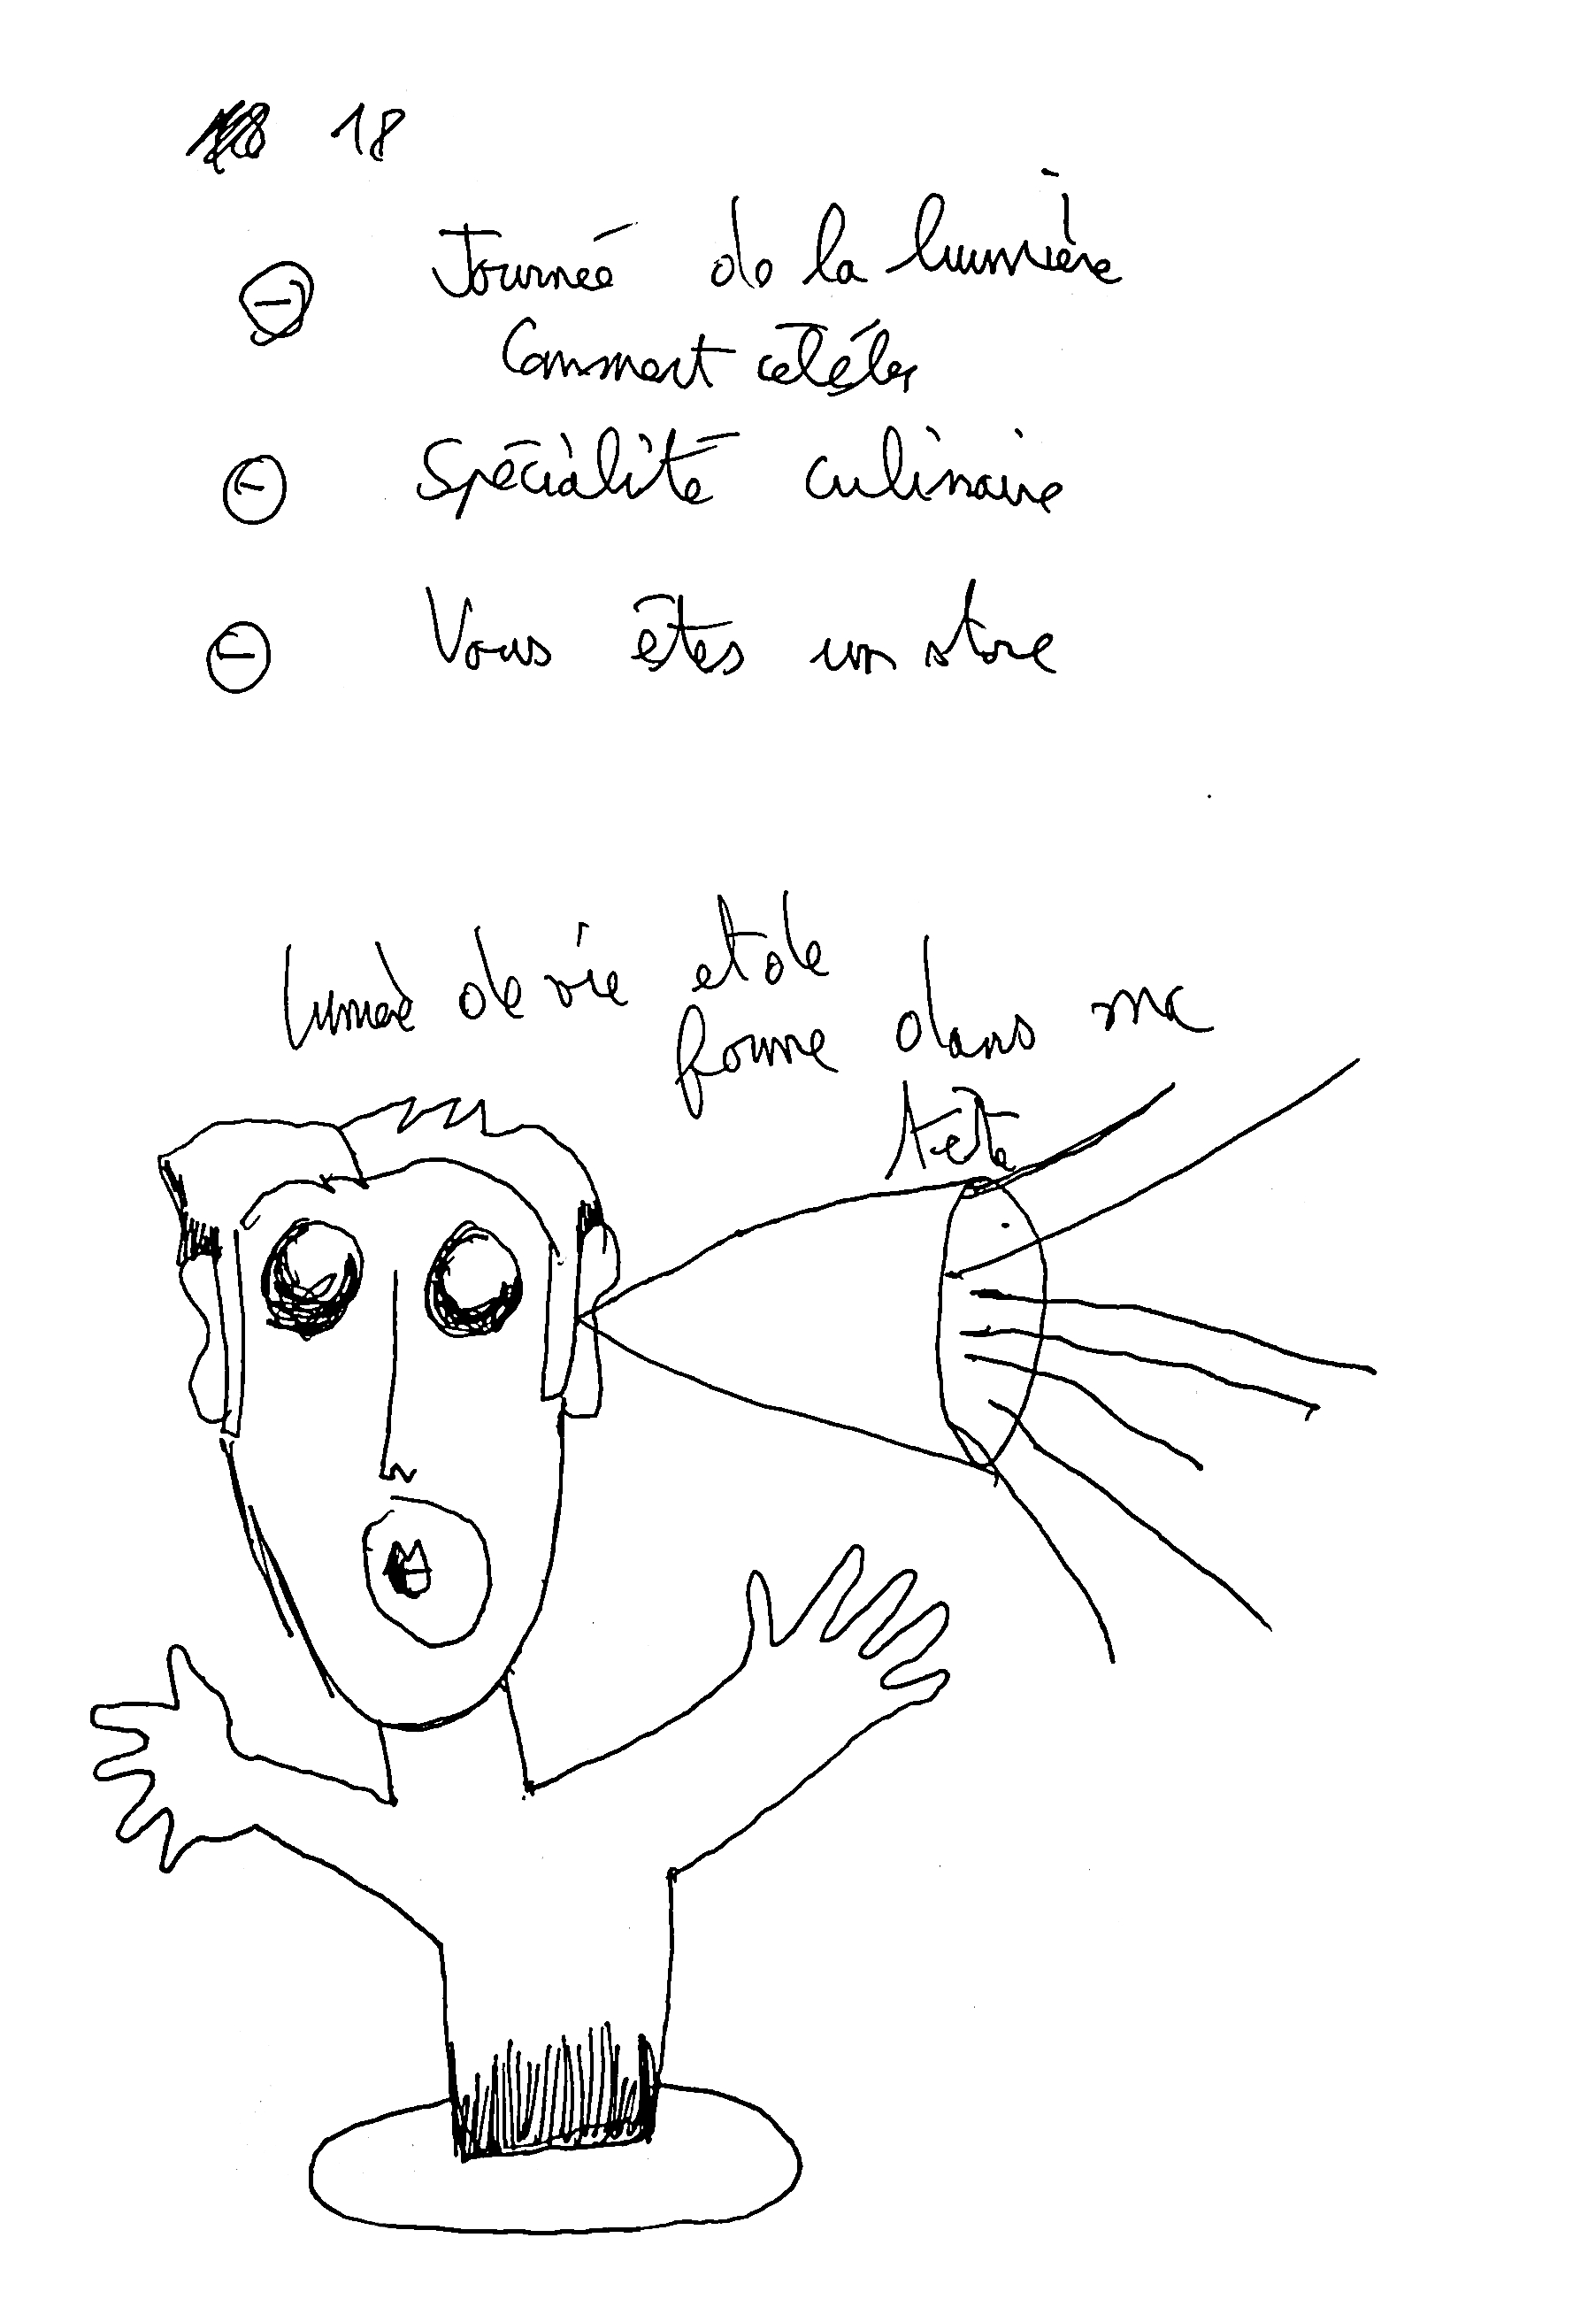 18
Journée de la lumière
Comment célébrer
Spécialité culinaire
Vous êtes un store
lumière de vie et de
forme dans ma
tête